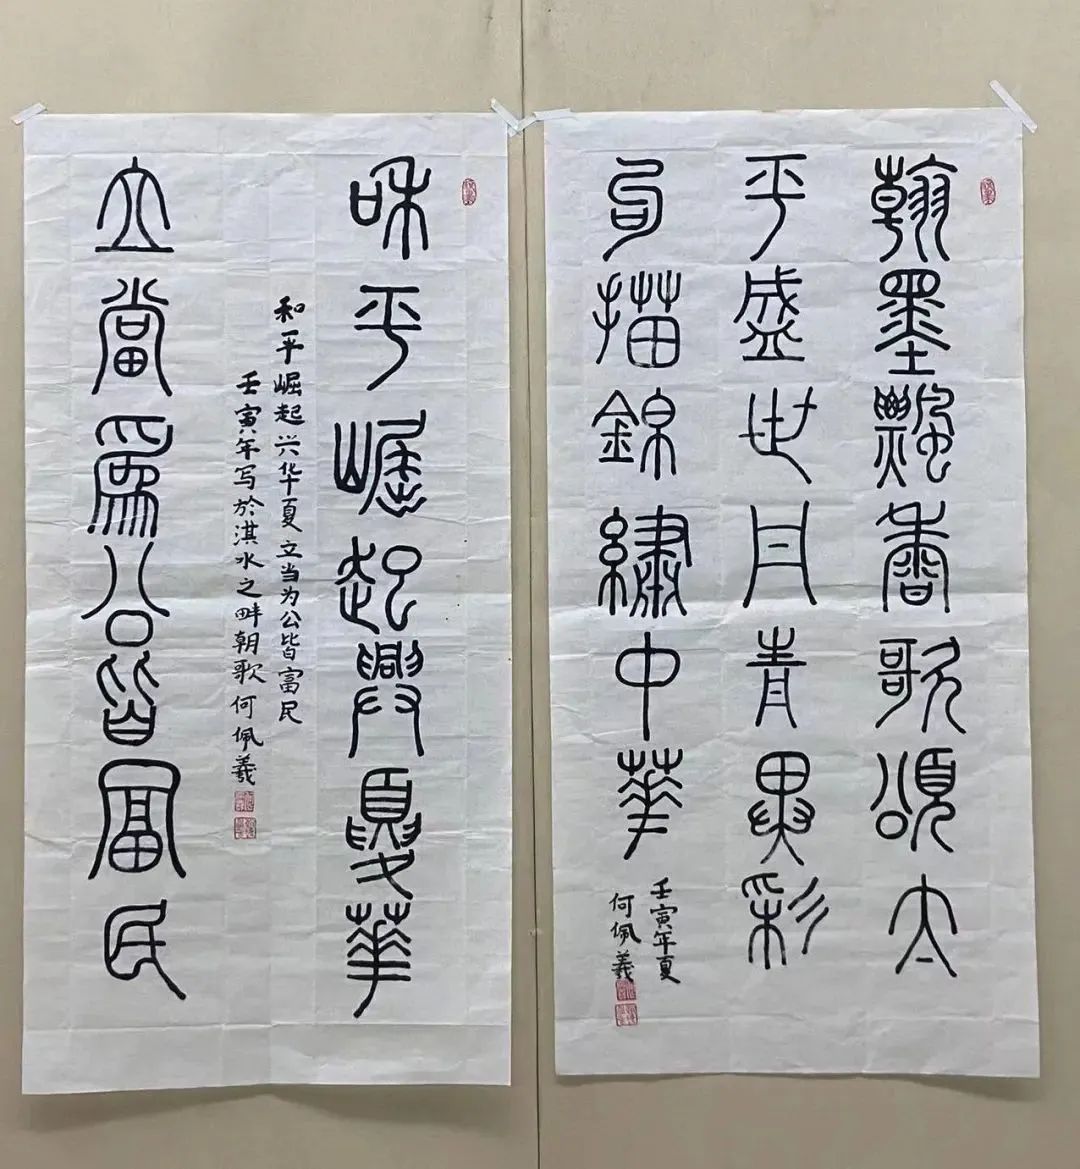 翰墨飄香歌頌太
平盛世丹青異彩
勾描錦繡中華
壬寅年夏
何佩羲
和平崛起興夏華
和平崛起兴华夏立当为公皆富民
壬寅年写於淇水之畔朝歌何佩羲
立當爲公皆富民